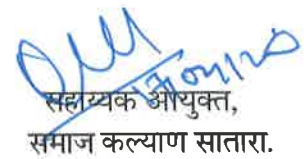 सहाय्यक आयुक्त,
समाज कल्याण सातारा.